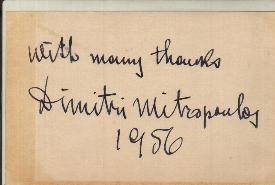 with many thanks
Dimitri Mitropoulos
1956